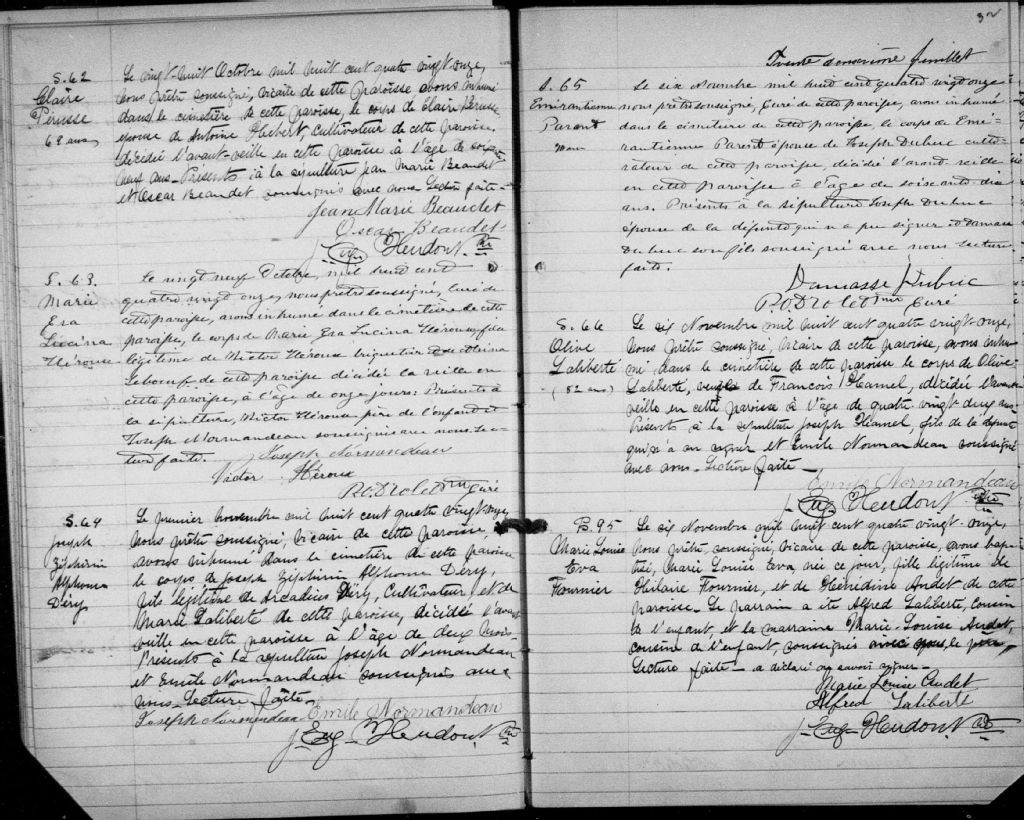 S. 62
Claire
Perusse
69 ans
Le vingt-huit Octobre mil huit cent quatre vingt onze,
nous prêtre soussigné, vicaire de cette paroisse avons inhumé
dans le cimetière de cette paroisse, le corps de Claire Perusse
épouse de Antoine Hebert, Cultivateur de cette paroisse,
décédée l'avant-veille en cette paroisse à l'âge de soixante
neuf ans. Présents à la sépulture Jean Marie Beaudet
et Oscar Beaudet soussignés avec nous. Lecture faite.
Jean Marie Beaudet
Oscar Beaudet
J. Eug. Heudont Ptr
S. 63.
Marie
Eva
Lucina
Héroux
Le vingt neuf Octobre, mil huit cent
quatre vingt onze, nous prêtre soussigné, Curé de
cette paroisse, avons inhumé dans le cimetière de cette
paroisse, le corps de Marie Eva Lucina Héroux fille
légitime de Victor Héroux briquetier et de
Leboeuf de cette paroisse décédée la veille en
cette paroisse, à l'âge de onze jours: Présents à
la sépulture, Victor Héroux père de l'enfant et
Joseph Normandeau soussignés avec nous. Lec-
ture faite. Joseph Normandeau
Victor Héroux
P.O. Drolet Ptre Curé
S. 64
Joseph
Zéphirin
Alphonse
Déry
Le premier novembre mil huit cent quatre vingt onze,
nous prêtre soussigné, vicaire de cette paroisse,
avons inhumé dans le cimetière de cette paroisse
le corps de Joseph Zéphirin Alphonse Déry,
fils légitime de Arcadius Déry, Cultivateur et de
Marie Laliberté de cette paroisse, décédé l'avant
veille en cette paroisse à l'âge de deux mois
Présents à la sépulture Joseph Normandeau
et Emile Normandeau soussignés avec
nous. Lecture faite
Joseph Normandeau Emile Normandeau
J. Eug. Heudont Ptr
32
Trente deuxième feuillet
S. 65
Emérantienne
Parent
Le six Novembre mil huit cent quatre vingt onze
nous prêtre soussigné, Curé de cette paroisse, avons inhumé
dans le cimetière de cette paroisse, le corps de Emé-
rantienne Parent épouse de Joseph Dubuc culti-
vateur de cette paroisse, décédée l'avant veille
en cette paroisse à l'âge de soixante dix
ans. Présents à la sépulture Joseph Dubuc
époux de la défunte qui n'a pu signer et Damase
Dubuc son fils soussigné avec nous lecture
faite.
Damasse Dubuc
P.O. Drolet Ptre Curé
S. 66
Olive
Laliberté
(82 ans)
Le six Novembre mil huit cent quatre vingt-onze,
nous prêtre soussigné, vicaire de cette paroisse, avons inhu-
mé, dans le cimetière de cette paroisse le corps de Olive
Laliberté, veuve de Francois Hamel, décédée l'avant
veille en cette paroisse à l'âge de quatre vingt deux ans
Présents à la sépulture Joseph Hamel, fils de la défunte
qui n'a su signer et Emile Normandeau soussigné
avec nous. Lecture faite
Emile Normandeau
J. Eug. Heudont Ptr
B. 95
Marie Louise
Eva
Fournier
Le six Novembre mil huit cent quatre vingt-onze,
nous prêtre, soussigné, vicaire de cette paroisse, avons bap-
tisé, Marie Louise Eva, née ce jour, fille légitime de
Hilaire Fournier, et de Henédine Audet de cette
paroisse. Le parrain a été Alfred Laliberté, cousin
de l'enfant, et la marraine Marie-Louise Audet,
cousine de l'enfant, soussignés avec nous, le père,
Lecture faite a déclaré ne savoir signer.
Marie Louise Audet
Alfred Laliberté
J. Eug. Heudont Ptr